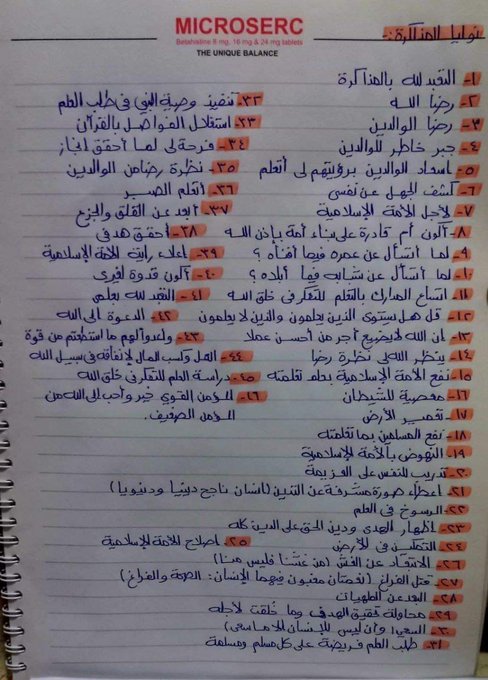 MICROSERC
Betahistine 8 mg, 16 mg & 24 mg tablets
THE UNIQUE BALANCE
نوايا المذاكرة:-
١- التعبد لله بالمذاكرة
٢- رضا الله
٣- رضا الوالدين
٤- جبر خاطر للوالدين
٥- إسعاد الوالدين برؤيتهم لي أتعلم
٦- كشف الجهل عن نفسي
٧- لأجل الأمة الإسلامية
٨- أكون أم قادرة على بناء أمة بإذن الله
٩- لما أتسأل عن عمره فيما أفناه ؟
١٠- لما أتسأل عن شبابه فيما أبلاه ؟
١١- اتساع المدارك بالتعلم للتفكر في خلق الله
١٢- قل هل يستوي الذين يعلمون والذين لا يعلمون
١٣- إن الله لا يضيع أجر من أحسن عملا
١٤- ينظر الله لي نظرة رضا
١٥- نفع الأمة الإسلامية بعلم تعلمته
١٦- معصية للشيطان
١٧- تعمير الأرض
١٨- نفع المسلمين بما تعلمته
١٩- النهوض بالأمة الإسلامية
٢٠- تدريب للنفس على العزيمة
٢١- إعطاء صورة مشرفة عن الدين (إنسان ناجح دينيا ودنيويا)
٢٢- الرسوخ في العلم
٢٣- إظهار الهدى ودين الحق على الدين كله
٢٤- التمكين في الأرض
٢٥- إصلاح للأمة الإسلامية
٢٦- الابتعاد عن الغش (من غشنا فليس منا)
٢٧- قتل الفراغ (نعمتان مغبون فيهما الإنسان: الصحة والفراغ)
٢٨- البعد عن الملهيات
٢٩- محاولة تحقيق الهدف وما خلقت لأجله
٣٠- السعي (وأن ليس للإنسان إلا ما سعى)
٣١- طلب العلم فريضة على كل مسلم ومسلمة
٣٢- تنفيذ وصية النبي في طلب العلم
٣٣- استغلال الفواصل بالقرآن
٣٤- فرحة لي لما أحقق إنجاز
٣٥- نظرة رضا من الوالدين
٣٦- أتعلم الصبر
٣٧- أبعد عن القلق والجزع
٣٨- أحقق هدفي
٣٩- إعلاء راية الأمة الإسلامية
٤٠- أكون قدوة لغيري
٤١- التعبد لله بعلم
٤٢- الدعوة إلى الله
٤٣- وأعدوا لهم ما استطعتم من قوة
٤٤- العمل وكسب المال لإنفاقه في سبيل الله
٤٥- دراسة العلم للتفكر في خلق الله
٤٦- المؤمن القوي خير وأحب إلى الله من
المؤمن الضعيف.